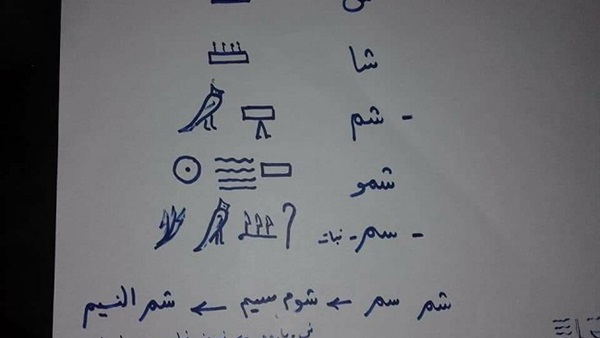 شا
- شم
شمو
- سم - نبات
شم سم ← شوم سيم ← شم النسيم